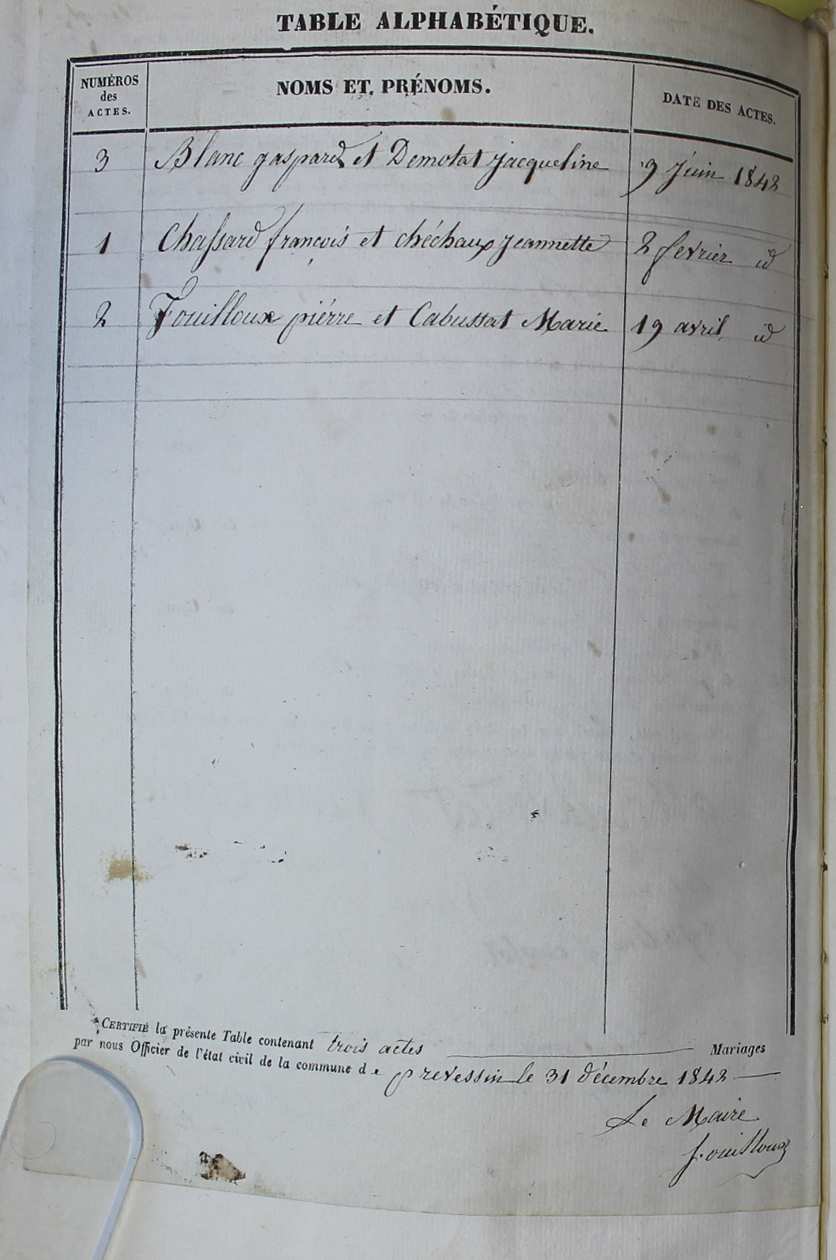 TABLE ALPHABÉTIQUE.
NUMÉROS des ACTES.
NOMS ET, PRÉNOMS.
DATE DES ACTES.
3 Blanc gaspard et Demotat jacqueline 9 juin 1842
1 Chassard françois et chéchaux jeannette 2 fevrier id
2 Fouilloux piérre et Cabussat Marie 19 avril id
CERTIFIÉ la présente Table contenant trois actes Mariages
par nous Officier de l'état civil de la commune de prevessin le 31 décembre 1842
Le Maire
fouilloux